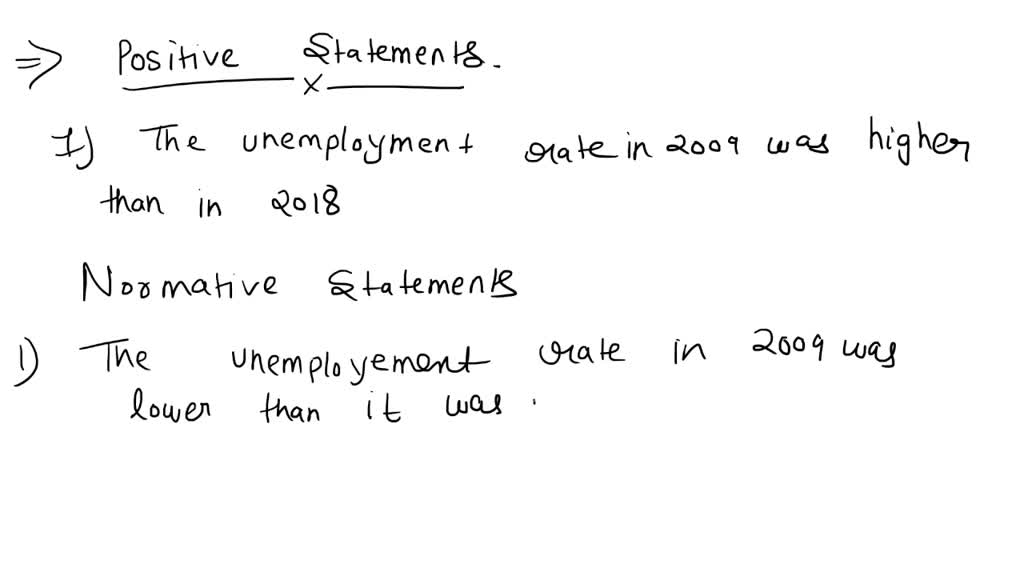 ⇒ Positive Statements.
x
1) The unemployment rate in 2009 was higher
than in 2018
Normative Statements
1) The unemployement rate in 2009 was
lower than it was .